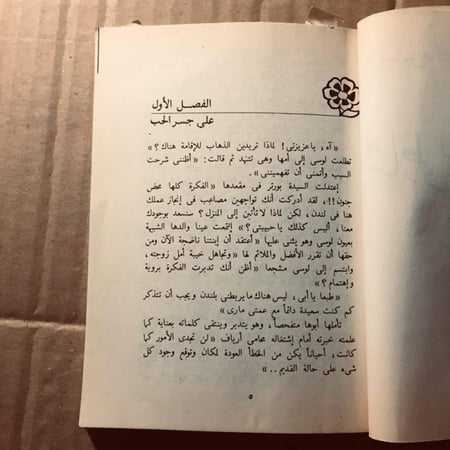 الفصل الأول
على جسر الحب
« آه، ياعزيزتى! لماذا تريدين الذهاب للإقامة هناك؟ »
تطلعت لوسى إلى أمها وهى تتنهد ثم قالت: « أظننى شرحت
السبب وأتمنى أن تفهمينى » .
إعتدلت السيدة بورتر فى مقعدها « الفكرة كلها محض
جنون!!، لقد أدركت أنك تواجهين مصاعب فى إنجاز عملك
هنا فى لندن، لكن لماذا لاتأتين إلى المنزل؟ سنسعد بوجودك
معنا، أليس كذلك ياحبيبتى؟ » إلتمعت عينا والدها الشبيهة
بعيون لوسى وهو يثنى عليها « أعتقد أن إبنتنا ناضجة الآن ومن
حقها أن تقرر الأفضل والملائم لها » وتجاهل خيبة أمل زوجته،
وابتسم إلى لوسى مشجعا « أظن أنك تدبرت الفكرة بروية
وإهتمام؟ »
« طبعا يا أبى، ليس هناك ما يربطنى بلندن ويجب أن تتذكر
كم كنت سعيدة دائماً مع عمتى مارى »
تأملها أبوها متفحصاً، وهو يتدبر وينتقى كلماته بعناية كما
علمته خبرته أمام إشتغاله محامى أرياف « لن تجدى الأمور كما
كانت، أحياناً يكن من الخطأ العودة لمكان وتوقع وجود كل
شىء على حالة القديم .. »
٥